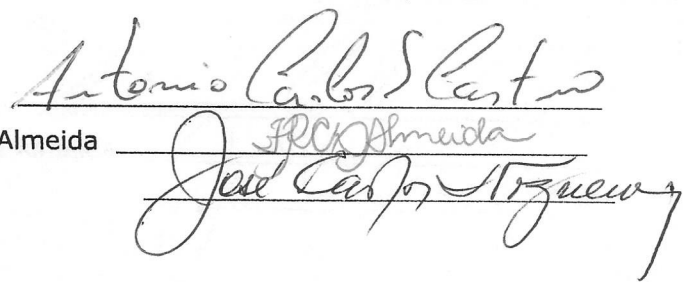 Antonio Carlos S Castro
Almeida FRC Almeida
José Carlos Nogueira